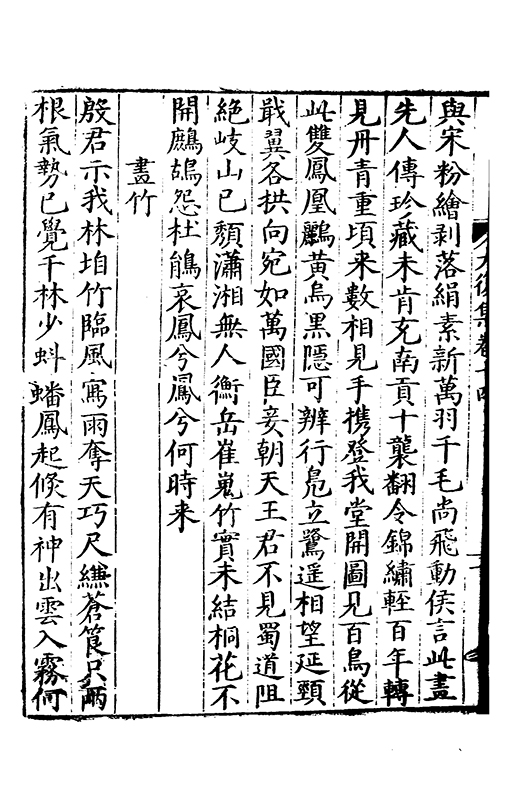 與宋粉繪剥落絹素新萬羽千毛尚飛動侯言此畫
先人傳珍藏未肯充南貢十襲翻令錦繡輕百年轉
見丹青重頃来數相見手攜登我堂開圖見百鳥從
此雙鳳凰鸝黄烏黑隱可辨行鳧立鷺遥相望延頸
戢翼各拱向宛如萬國臣妾朝天王君不見蜀道阻
絶岐山已頽瀟湘無人衡岳崔嵬竹實未結桐花不
開鷓鴣怨杜鵑哀鳳兮鳳兮何時来
畫竹
殷君示我林垍竹臨風寫雨奪天巧尺縑蒼筤只兩
根氣勢已覺千林少蚪蟠鳳起倏有神出雲入霧何